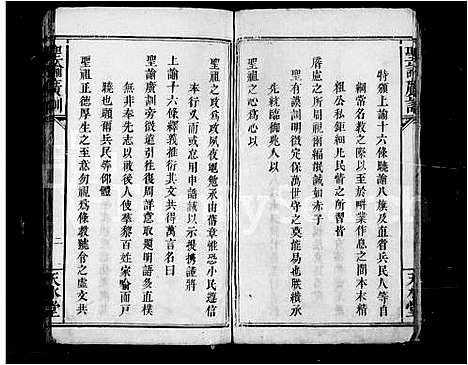 聖諭廣訓
特頒上諭十六條曉諭八旗及直省兵民人等自
綱常名教之際以至於耕桑作息之間本末精
粗公私鉅細凡民情之所習皆
睿慮之所周視爾編氓誠如赤子
聖有謨訓明徵定保萬世守之莫能易也朕纘承
大統臨御兆人以
聖祖之心為心以
聖祖之政為政夙夜黽勉率由舊章惟恐小民遵信
奉行久而或怠用申誥誡以示提撕謹將
上諭十六條尋繹其義推衍其文共得萬言名曰
聖諭廣訓旁徵遠引往復周詳意取顯明語多直樸
無非奉先志以啟後人使羣黎百姓家喻而戶
曉也願爾兵民等仰體
聖祖正德厚生之至意勿視為條教號令之虛文共
聖諭廣訓
二